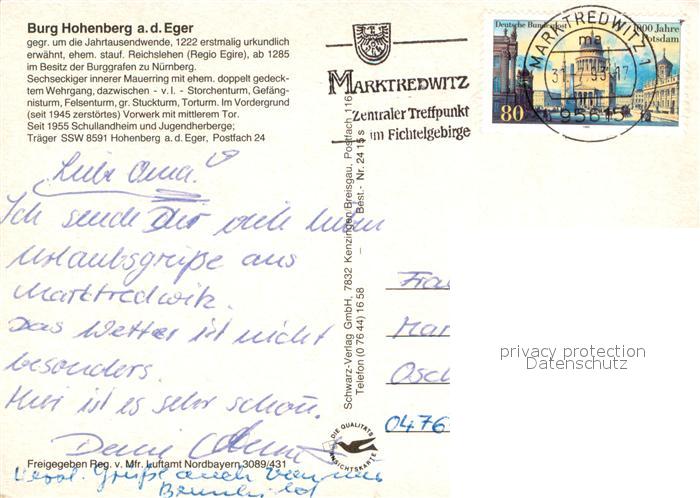 Burg Hohenberg a. d. Eger
gegr. um die Jahrtausendwende, 1222 erstmalig urkundlich
erwähnt, ehem. stauf. Reichslehen (Regio Egire), ab 1285
im Besitz der Burggrafen zu Nürnberg.
Sechseckiger innerer Mauerring mit ehem. doppelt gedeck-
tem Wehrgang, dazwischen - v. l. - Storchenturm, Gefäng-
nisturm, Felsenturm, gr. Stuckturm, Torturm. Im Vordergrund
(seit 1945 zerstörtes) Vorwerk mit mittlerem Tor.
Seit 1955 Schullandheim und Jugendherberge;
Träger SSW 8591 Hohenberg a. d. Eger, Postfach 24
Liebe Oma!
Ich sende Dir viele liebe
Urlaubsgrüße aus
Marktredwitz.
Das Wetter ist nicht
besonders.
Hier ist es sehr schön.
Freigegeben Reg. v. Mfr. Luftamt Nordbayern 3089/431
Grüße auch von
Schwarz-Verlag GmbH, 7832 Kenzingen/Breisgau, Postfach 116
Telefon (0 76 44) 16 58 Best.- Nr. 24 15 s
DIE QUALITÄTS
ANSICHTSKARTE
MARKTREDWITZ
Zentraler Treffpunkt
im Fichtelgebirge
Deutsche Bundespost
1000 Jahre
Potsdam
80
MARKTREDWITZ 1
ma
95615
Frau
Mar
Osch
0476
privacy protection
Datenschutz